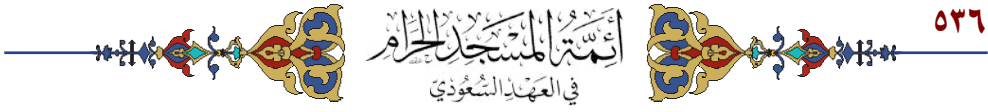 ٥٣٦
أَئِمَّةُ المَسْجِدِ الحَرَامِ
في العَهْدِ السُّعُودِيّ